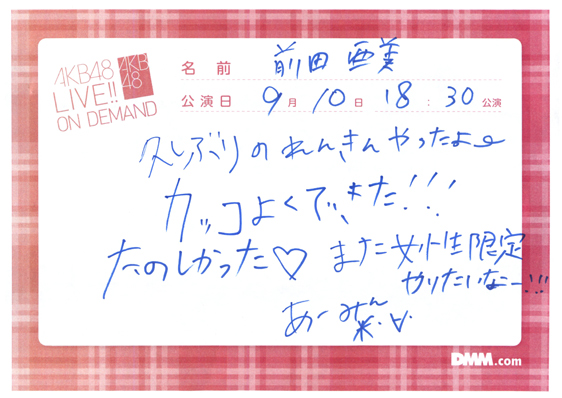 AKB48
LIVE!!
ON DEMAND
AKB
48
名前 前田 亜美
公演日 9月 10日 18:30公演
久しぶりのれんきんやったよ
カッコよくできた!!!
たのしかった♡ また女性限定
やりたいなー!!!
あーみん
DMM.com